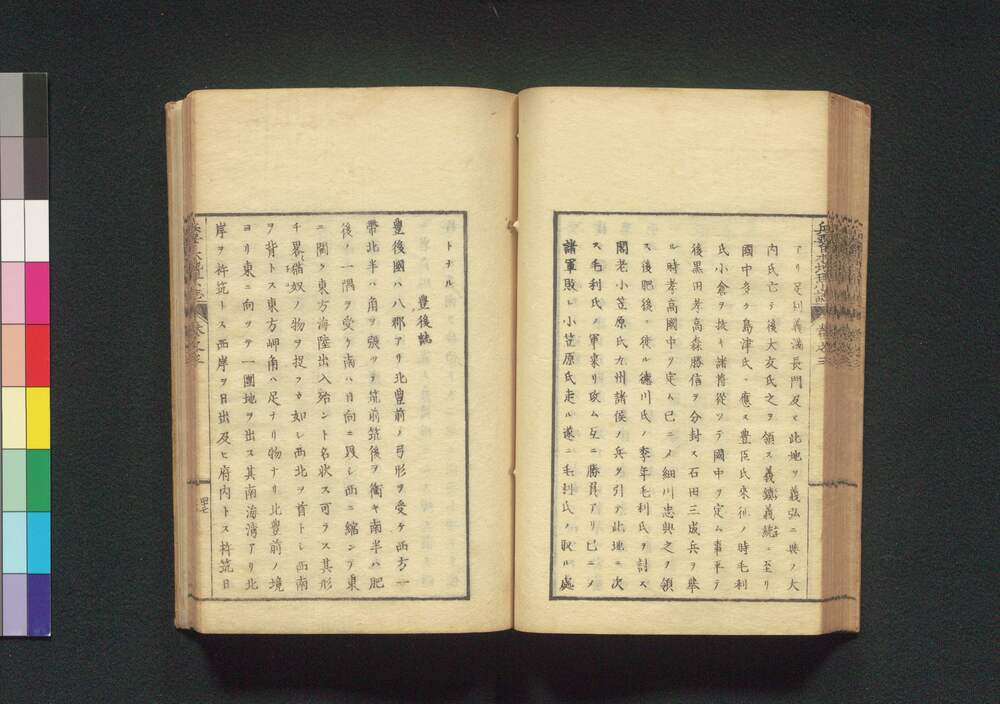 アリ足利義満長門及ヒ此地ヲ義弘ニ與フ大
内氏亡テ後大友氏之ヲ領ス義鎮義統ニ至リ
國中多ク島津氏ニ應ス豊臣氏來征ノ時毛利
氏小倉ヲ抜キ諸將從ツテ國中ヲ定ム事平テ
後黒田孝高森勝信ヲ分封ス石田三成兵ヲ擧
ル時孝高國中ヲ定ム已ニノ細川忠興之ヲ領
ス後肥後ニ徙ル德川氏ノ季年毛利氏ヲ討ス
閣老小笠原氏九州諸侯ノ兵ヲ引テ此地ニ次
ス毛利氏ノ軍來リ攻ム互ニ勝負アリ已ニノ
諸軍敗レ小笠原氏走ル遂ニ毛利氏ノ取ル處
トナル
豊後誌
豊後國ハ八郡アリ北豊前ノ弓形ヲ受ケ西方一
帶北半ハ角ヲ張ツテ筑前筑後ヲ衝キ南半ハ肥
後ノ一隅ヲ受ク南ハ日向ニ毀レ西ニ縮ンテ東
ニ闊ク東方海陸出入殆ント名状ス可ラス其形
チ畧猫奴ノ物ヲ捉フカ如シ西北ヲ首トシ西南
ヲ背トス東方岬角ハ足ナリ物ナリ北豊前ノ境
ヨリ東ニ向ツテ一團地ヲ出ス其南海湾アリ北
岸ヲ杵筑トス西岸ヲ日出及ヒ府内トス杵筑日
四十七